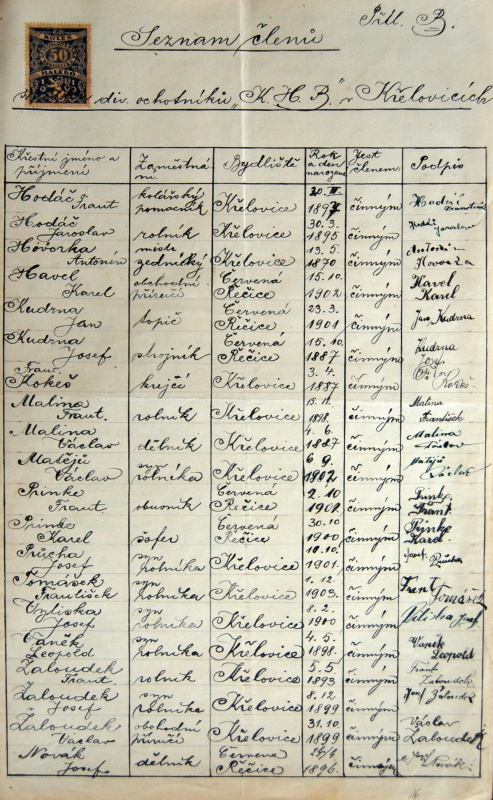 Příl. B.
Seznam členů
div. ochotníků "K. H. B." v Křelovicích
Křestní jméno a příjmení Zaměstnání Bydliště Rok a den narození Jest členem: Podpis
Hodáč Frant kolářský pomocník Křelovice 20. II. 1897 činným Hodáč František
Hodáč Jaroslav rolník Křelovice 30. 3. 1895 činným Hodáč Jaroslav
Hovorka Antonín mistr zednický Křelovice 13. 5. 1870 činným Antonín Hovorka
Havel Karel obchodní příručí Červená Řečice 15. 10. 1902 činným Havel Karel
Kudrna Jan topič Červená Řečice 23. 3. 1901 činným Jan Kudrna
Kudrna Josef strojník Červená Řečice 15. 10. 1887 činným Kudrna Josef
Frant. Kokeš krejčí Křelovice 3. 4. 1887 činným Kokeš
Malina Frant. rolník Křelovice 15. 11. 1898. činným Malina František
Malina Václav dělník Křelovice 4. 6. 1887 činným Malina Václav
Matějů Václav syn rolníka Křelovice 6 9. 1902 činným Matějů Václav
Prinke Frant. obuvník Červená Řečice 2. 10 1901 činným Prinke Frant.
Prinke Karel šofer Červená Řečice 30. 10 1900 činným Prinke Karel
Průcha Josef syn rolníka Křelovice 10. 10. 1901. činným Josef Průcha
Tomášek František syn rolníka Křelovice 1. 12. 1903. činným Fran Tomášek
Vyliska Josef syn rolníka Křelovice 8. 2. 1900 činným Josef
Vaněk Leopold syn rolníka Křelovice 4. 5. 1898. činným Vaněk Leopold
Žaloudek Frant. rolník Křelovice 5. 5 1893 činným Frant Žaloudek
Žaloudek Josef syn rolníka Křelovice 8. 12 1899 činným Josef Žaloudek
Žaloudek Václav obchodní příručí Křelovice 31. 10 1899 činným Václav Žaloudek
Novák Josef dělník Červená Řečice 1896. činným Josef Novák